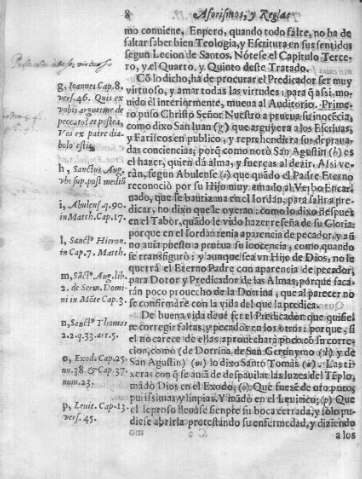 8 Aforismos, y Reglas
mo conviene. Empero, quando todo falte, no ha de
faltar saber bien Teologia, y Escritura en sus sentidos
segun Lecion de Santos. Nótese el Capitulo Terce-
ro, y el Quarto, y Quinto deste Tratado.
Cõ lo dicho, ha de procurar el Predicador ser muy
virtuoso, y amar todas las virtudes: para q̃ assi, mo-
nido èl interiormente, mueua al Auditorio. Prime-
ro puso Christo Señor Nuestro a prueua su inocẽcia,
como dixo San Iuan (g) que arguyera a los Escriuas,
y Fariseos en publico, y reprehendiera sus deprava-
das conciencias; porq̃ como notò San Agustin (h) es
el hazer, quien dà alma, y fuerças al dezir. Assi ve-
ràn, segun Abulense (i) que quãdo el Padre Eterno
reconociò por su Hijo muy amado al Verbo Encar-
nado, que se bautizama en el Iordan, para salir a pre-
dicar, no dixo que le oyeran: como lo dixo despues
en el Tabor, quãdo le vido hazer reseña de su Gloria:
porque en el Iordan tenia aparencia de pecador, y a ũ
no auia puesto a prueua su inocencia, como quando
se transfigurò: y aunque sea vn Hijo de Dios, no le
querrà el Eterno Padre con aparencia de pecador,
para Dotor y Predicador de las Almas, porque saca-
ràn poco prouecho de la Dotrina, que al parecer no
se confirmare con la vida del que la predica.
De buena vida deue ser el Predicador que quisie-
re corregir faltas, y pecados en los otros: porque, si
èl no carece de ellas, aprouecharà poco con su corre-
cion, como (de Dotrina de San Geronymo (l) y de
San Agustin) (m) lo dixo Santo Tomàs (n). Las ti-
xeras con q̃ se auia de despauilar las luzes del Tẽplo,
mãdò Dios en el Exodo, (o) Que fuessẽ de oro puro,
purissimas, y limpias. Y mãdò en el Leuitico; (p) Que
el leproso lleuasse siempre su boca cerrada, y solo pu-
diesse abrirla protestando su enfermedad, y diziendo
a los
g, Ioannes Cap. 8.
vers. 46. Quis ex
vobis arguet me de
peccato?
Vos ex patre dia-
bolo estis.
h, Sanctus Aug.
vbi sup. post mediũ
i, Abulens. q. 90.
in Matth. Cap. 17.
l, Sanctꝰ Hieron.
in Cap. 7. Matth.
m, Sãctꝰ Aug. lib.
2. de Serm. Domi-
ni in Mõte Cap. 3.
n, Sanctꝰ Thomas
2. 2. q. 33. art. 5.
o, Exod. Cap. 25.
nu. 38. & Cap. 37.
num. 23.
p, Leuit. Cap. 13.
vers. 45.